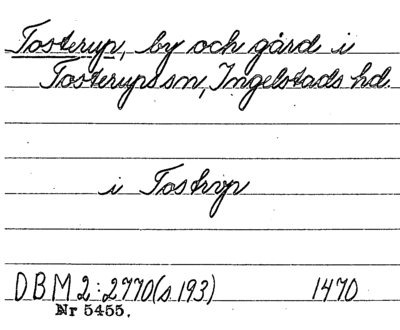 Tosterup, by och gård i
Tosterups sn, Ingelstads hd.
i Tostrvp
DBM 2:2770(s 193) 1470
Nr 5455.